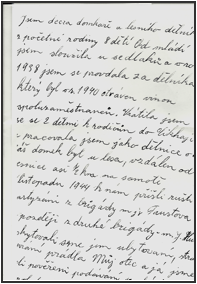 Jsem dcera domkaře a lesního dělníka
z početné rodiny 8 dětí. Od mládí
jsem sloužila u sedláků a v roce
1938 jsem se provdala za dělníka
který byl až 1940 otráven vinou
spoluzaměstnanců. Vrátila jsem
se se 2 dětmi k rodičům do
pracovala jsem jako dělnice
náš domek byl u lesa, vzdálen od
vesnice asi 1 km na samotě
listopadu 1944 k nám přišli ruští
partyzáni z brigády m. j. Faustova
později z druhé brigády - m. j.
skytovali jsme jim ubytování, stra
vování, prádla. Můj otec a já jsme
li pověřeni podáváním